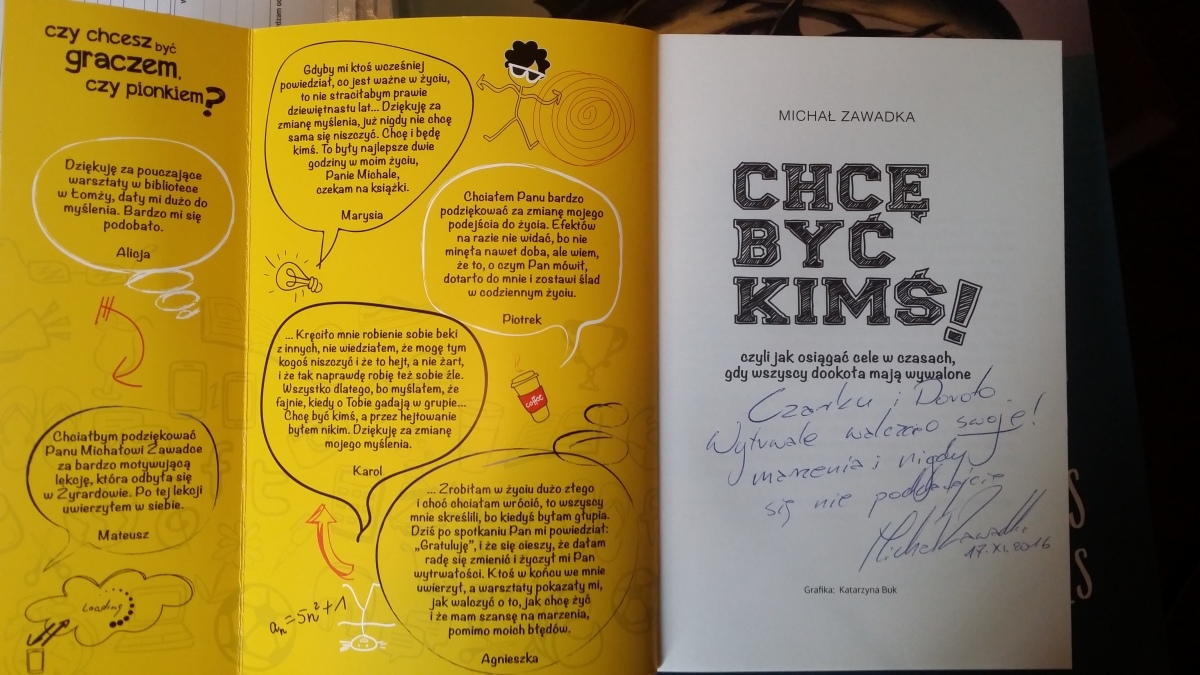 czy chcesz być
graczem,
czy pionkiem?
Dziękuję za pouczające
warsztaty w bibliotece
w Łomży, dały mi dużo do
myślenia. Bardzo mi się
podobało.
Alicja
Chciałbym podziękować
Panu Michałowi Zawadce
za bardzo motywującą
lekcję, która odbyła się
w Żyrardowie. Po tej lekcji
uwierzyłem w siebie.
Mateusz
Loading
Gdyby mi ktoś wcześniej
powiedział, co jest ważne w życiu,
to nie straciłabym prawie
dziewiętnastu lat... Dziękuję za
zmianę myślenia, już nigdy nie chcę
sama się niszczyć. Chcę i będę
kimś. To były najlepsze dwie
godziny w moim życiu,
Panie Michale,
czekam na książki.
Marysia
Chciałem Panu bardzo
podziękować za zmianę mojego
podejścia do życia. Efektów
na razie nie widać, bo nie
minęła nawet doba, ale wiem,
że to, o czym Pan mówił,
dotarło do mnie i zostawi ślad
w codziennym życiu.
Piotrek
... Kręciło mnie robienie sobie beki
z innych, nie wiedziałem, że mogę tym
kogoś niszczyć i że to hejt, a nie żart,
i że tak naprawdę robię też sobie źle.
Wszystko dlatego, bo myślałem, że
fajnie, kiedy o Tobie gadają w grupie...
Chcę być kimś, a przez hejtowanie
byłem nikim. Dziękuję za zmianę
mojego myślenia.
Karol
coffee
... Zrobiłam w życiu dużo złego
i choć chciałam wrócić, to wszyscy
mnie skreślili, bo kiedyś byłam głupia.
Dziś po spotkaniu Pan mi powiedział:
„Gratuluję”, i że się cieszy, że dałam
radę się zmienić i życzył mi Pan
wytrwałości. Ktoś w końcu we mnie
uwierzył, a warsztaty pokazały mi,
jak walczyć o to, jak chcę żyć
i że mam szansę na marzenia,
pomimo moich błędów.
Agnieszka
aₙ=5n²+1
MICHAŁ ZAWADKA
CHCĘ
BYĆ
KIMŚ!
czyli jak osiągać cele w czasach,
gdy wszyscy dookoła mają wywalone
Czarku i Doroto
Wytrwale walczcie o swoje!
marzenia i nigdy
się nie poddajcie
Michał Zawadka
17.XI.2016
Grafika: Katarzyna Buk